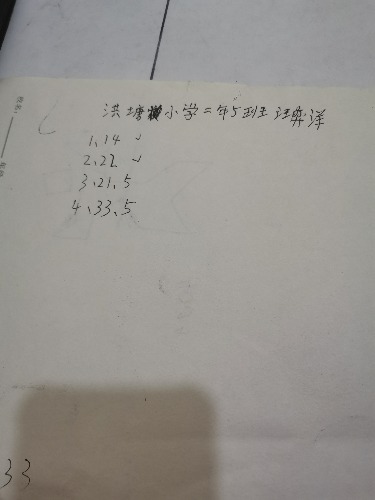 洪塘小学二年5班汪弈洋
1、14 ✓
2、22 ✓
3、21、5
4、33、5
33